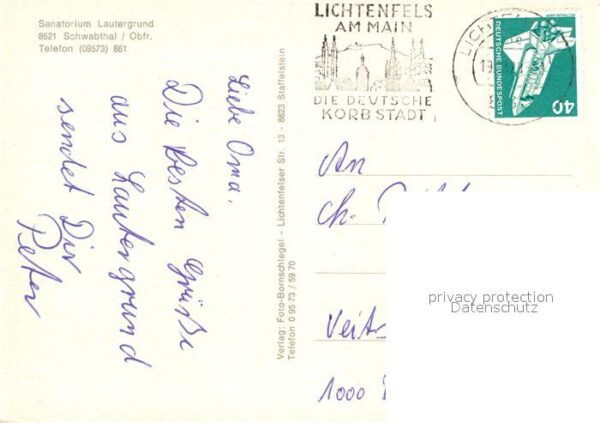 Sanatorium Lautergrund
8621 Schwabthal / Obfr.
Telefon (09573) 861
Liebe Oma,
Die besten Grüße
aus Lautergrund
sendet Dir
Peter
Verlag: Foto-Bornschlegel - Lichtenfelser Str. 13 - 8623 Staffelstein
Telefon 0 95 73 / 59 70
LICHTENFELS
AM MAIN
DIE DEUTSCHE
KORBSTADT
DEUTSCHE BUNDESPOST
40
An
Ch.
Veits
1000
privacy protection
Datenschutz